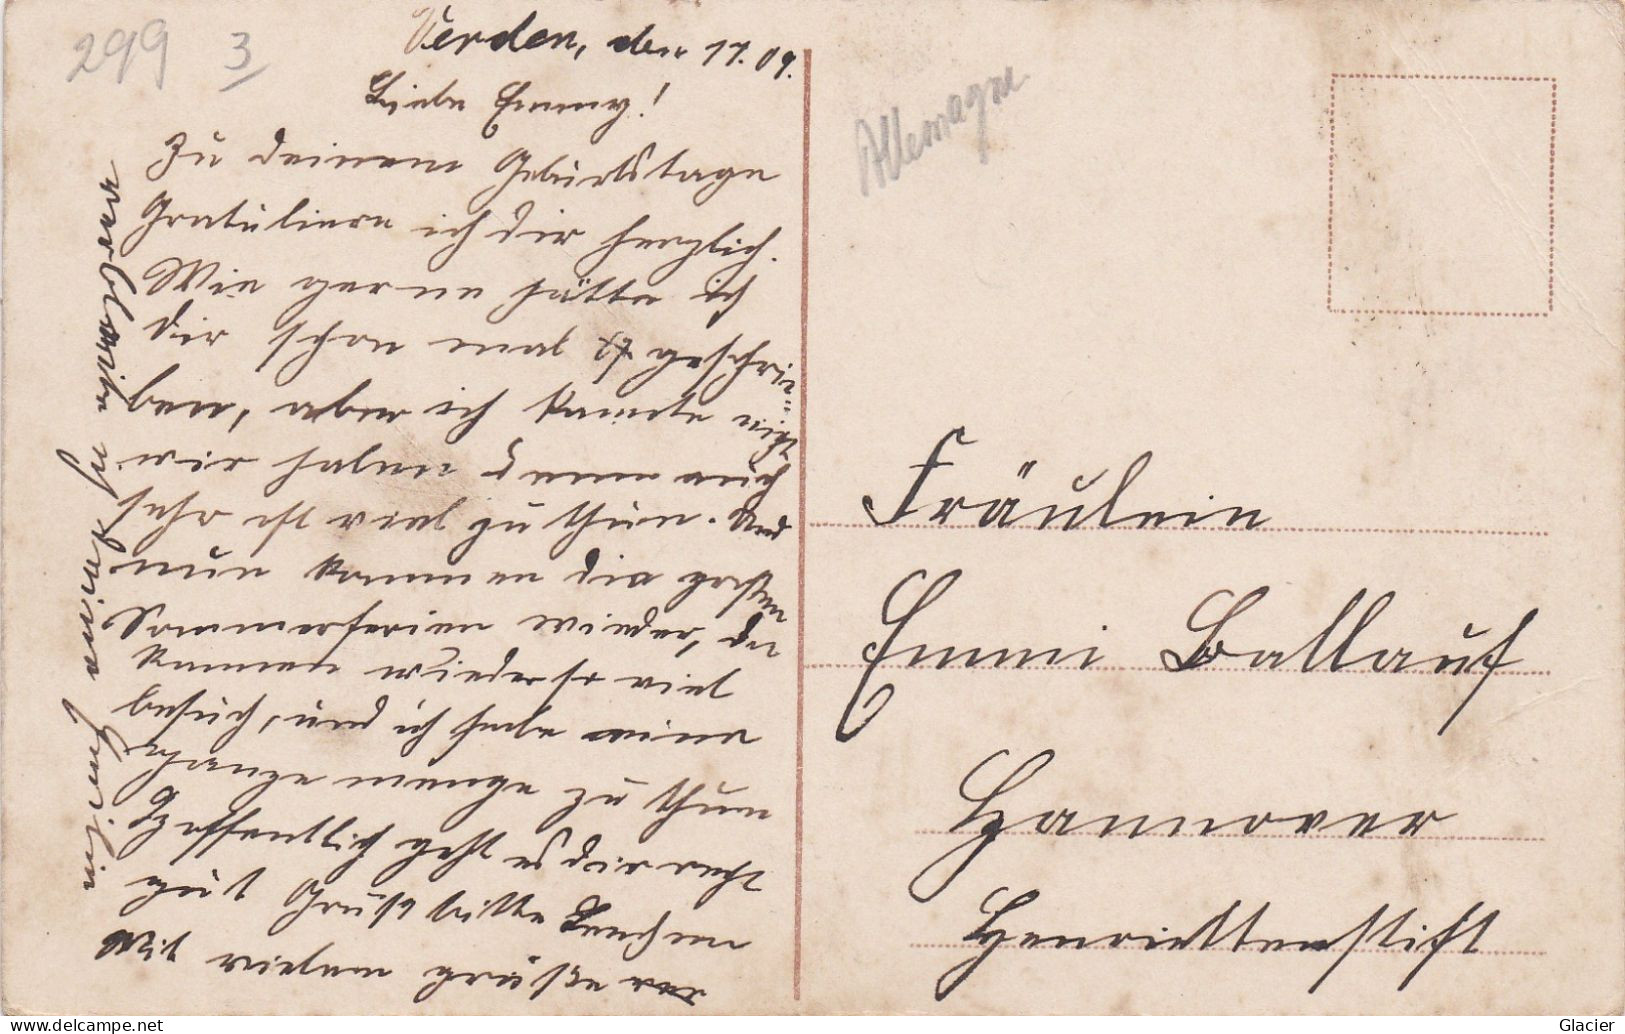 299 3
Verden, den 17.09.
Liebe Emmy!
Zu deinem Geburtstage
Gratuliere ich dir herzlich.
Wie gerne hätte ich
dir schon mal geschrie
ben, aber ich konnte nicht
wir haben denn auch
sehr viel zu thun. Und
nun kommen die großen
Sommerferien wieder, da
kommen wieder so viel
besuch, und ich habe eine
ganze menge zu thun
Hoffentlich geht es dir recht
gut Grüße bitte Lenchen
Mit vielen grüße
verbleibe ich deine
Allemagne
Fräulein
Emmi Ballauf
Hannover
Henriettenstift
delcampe.net
Glacier